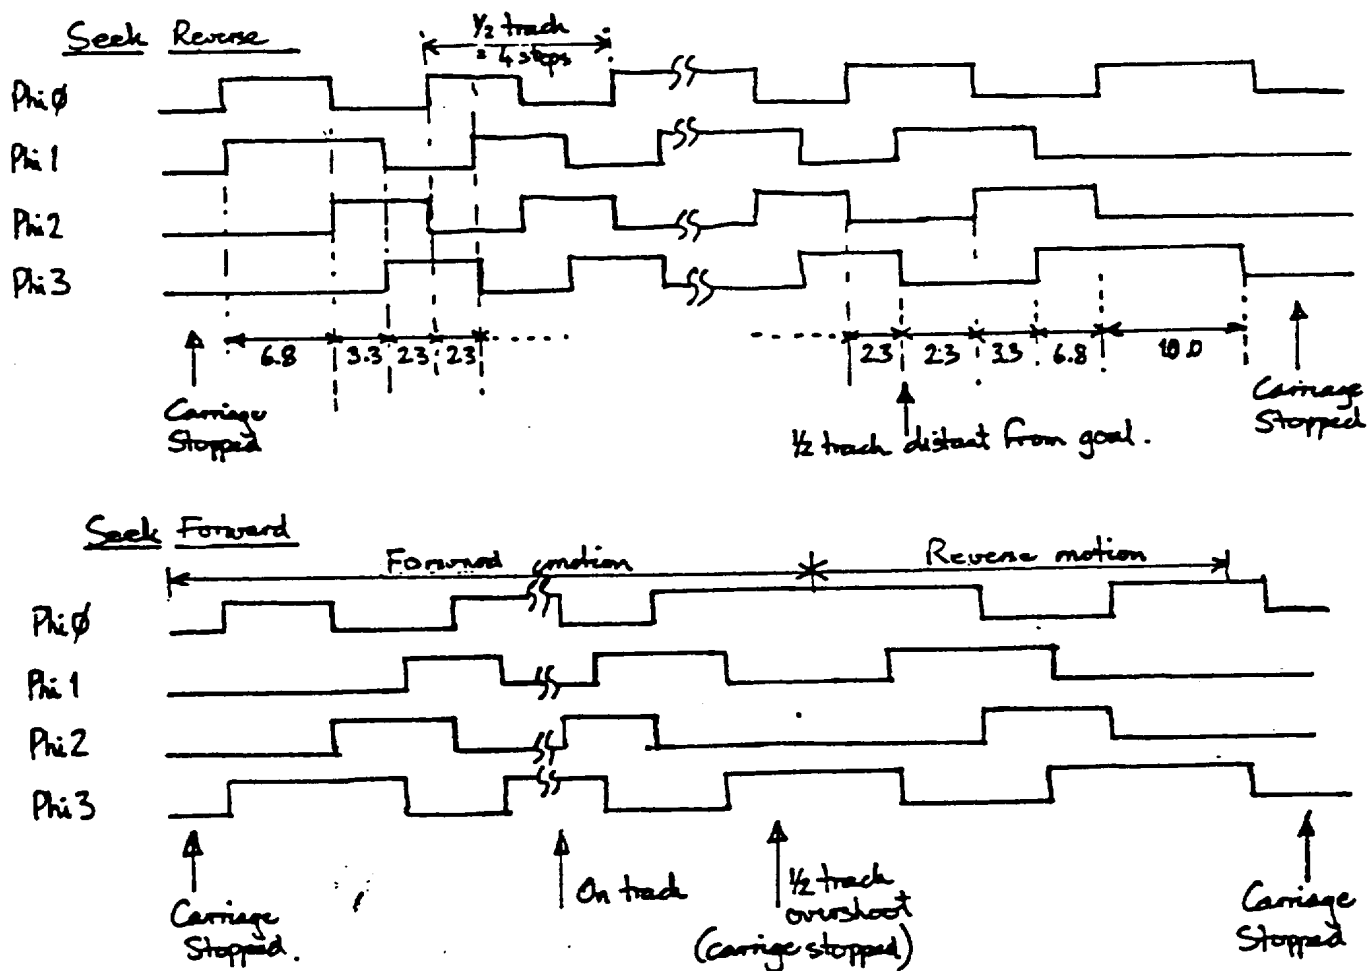 Seek Reverse
½ track
= 4 steps
Phi Ø
Phi 1
Phi 2
Phi 3
6.8 3.3 2.3 2.3 2.3 2.3 3.3 6.8 10.0
Carriage
Stopped
½ track distant from goal.
Carriage
Stopped
Seek Forward
Forward motion
Reverse motion
Phi Ø
Phi 1
Phi 2
Phi 3
Carriage
Stopped.
On track
½ track
overshoot
(carrige stopped)
Carriage
Stopped